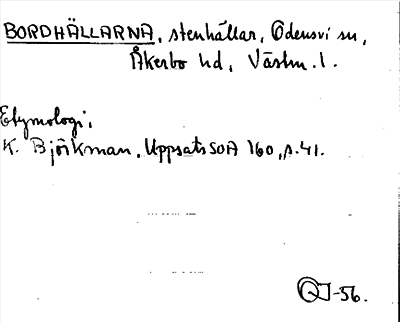 BORDHÄLLARNA, stenhällar, Odensvi sn,
Åkerbo hd, Västm. l.
Etymologi,
K. Björkman, Uppsats SOA 160, s. 41.
-56.